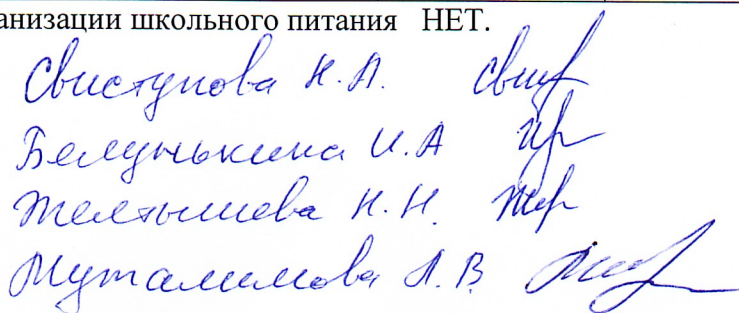 анизации школьного питания НЕТ.
Свистунова Н.А.
Белунькина И.А
Желтышева Н.Н.
Муталимова А.В.